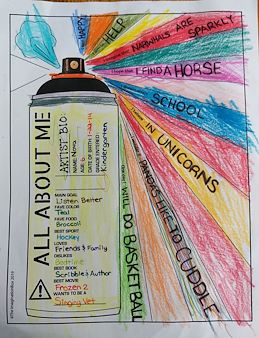 HAPPY
HELP
NARWHALS ARE SPARKLY
I hope that I FIND A HORSE
SCHOOL
IN UNICORNS
PANDAS LIKE TO CUDDLE
I WILL DO BASKETBALL
ALL ABOUT ME
ARTIST BIO
NAME: Nora
AGE: 6
DATE OF BIRTH:
GRADE ENTERED:
Kindergarten
MAIN GOAL
Listen Better
FAVE COLOR
Teal
FAVE FOOD
Broccoli
BEST SPORT
Hockey
LOVES
Friends & Family
DISLIKES
Bedtime
BEST BOOK
Scribble's Author
BEST MOVIE
Frozen 2
WANTS TO BE A
Singing Vet